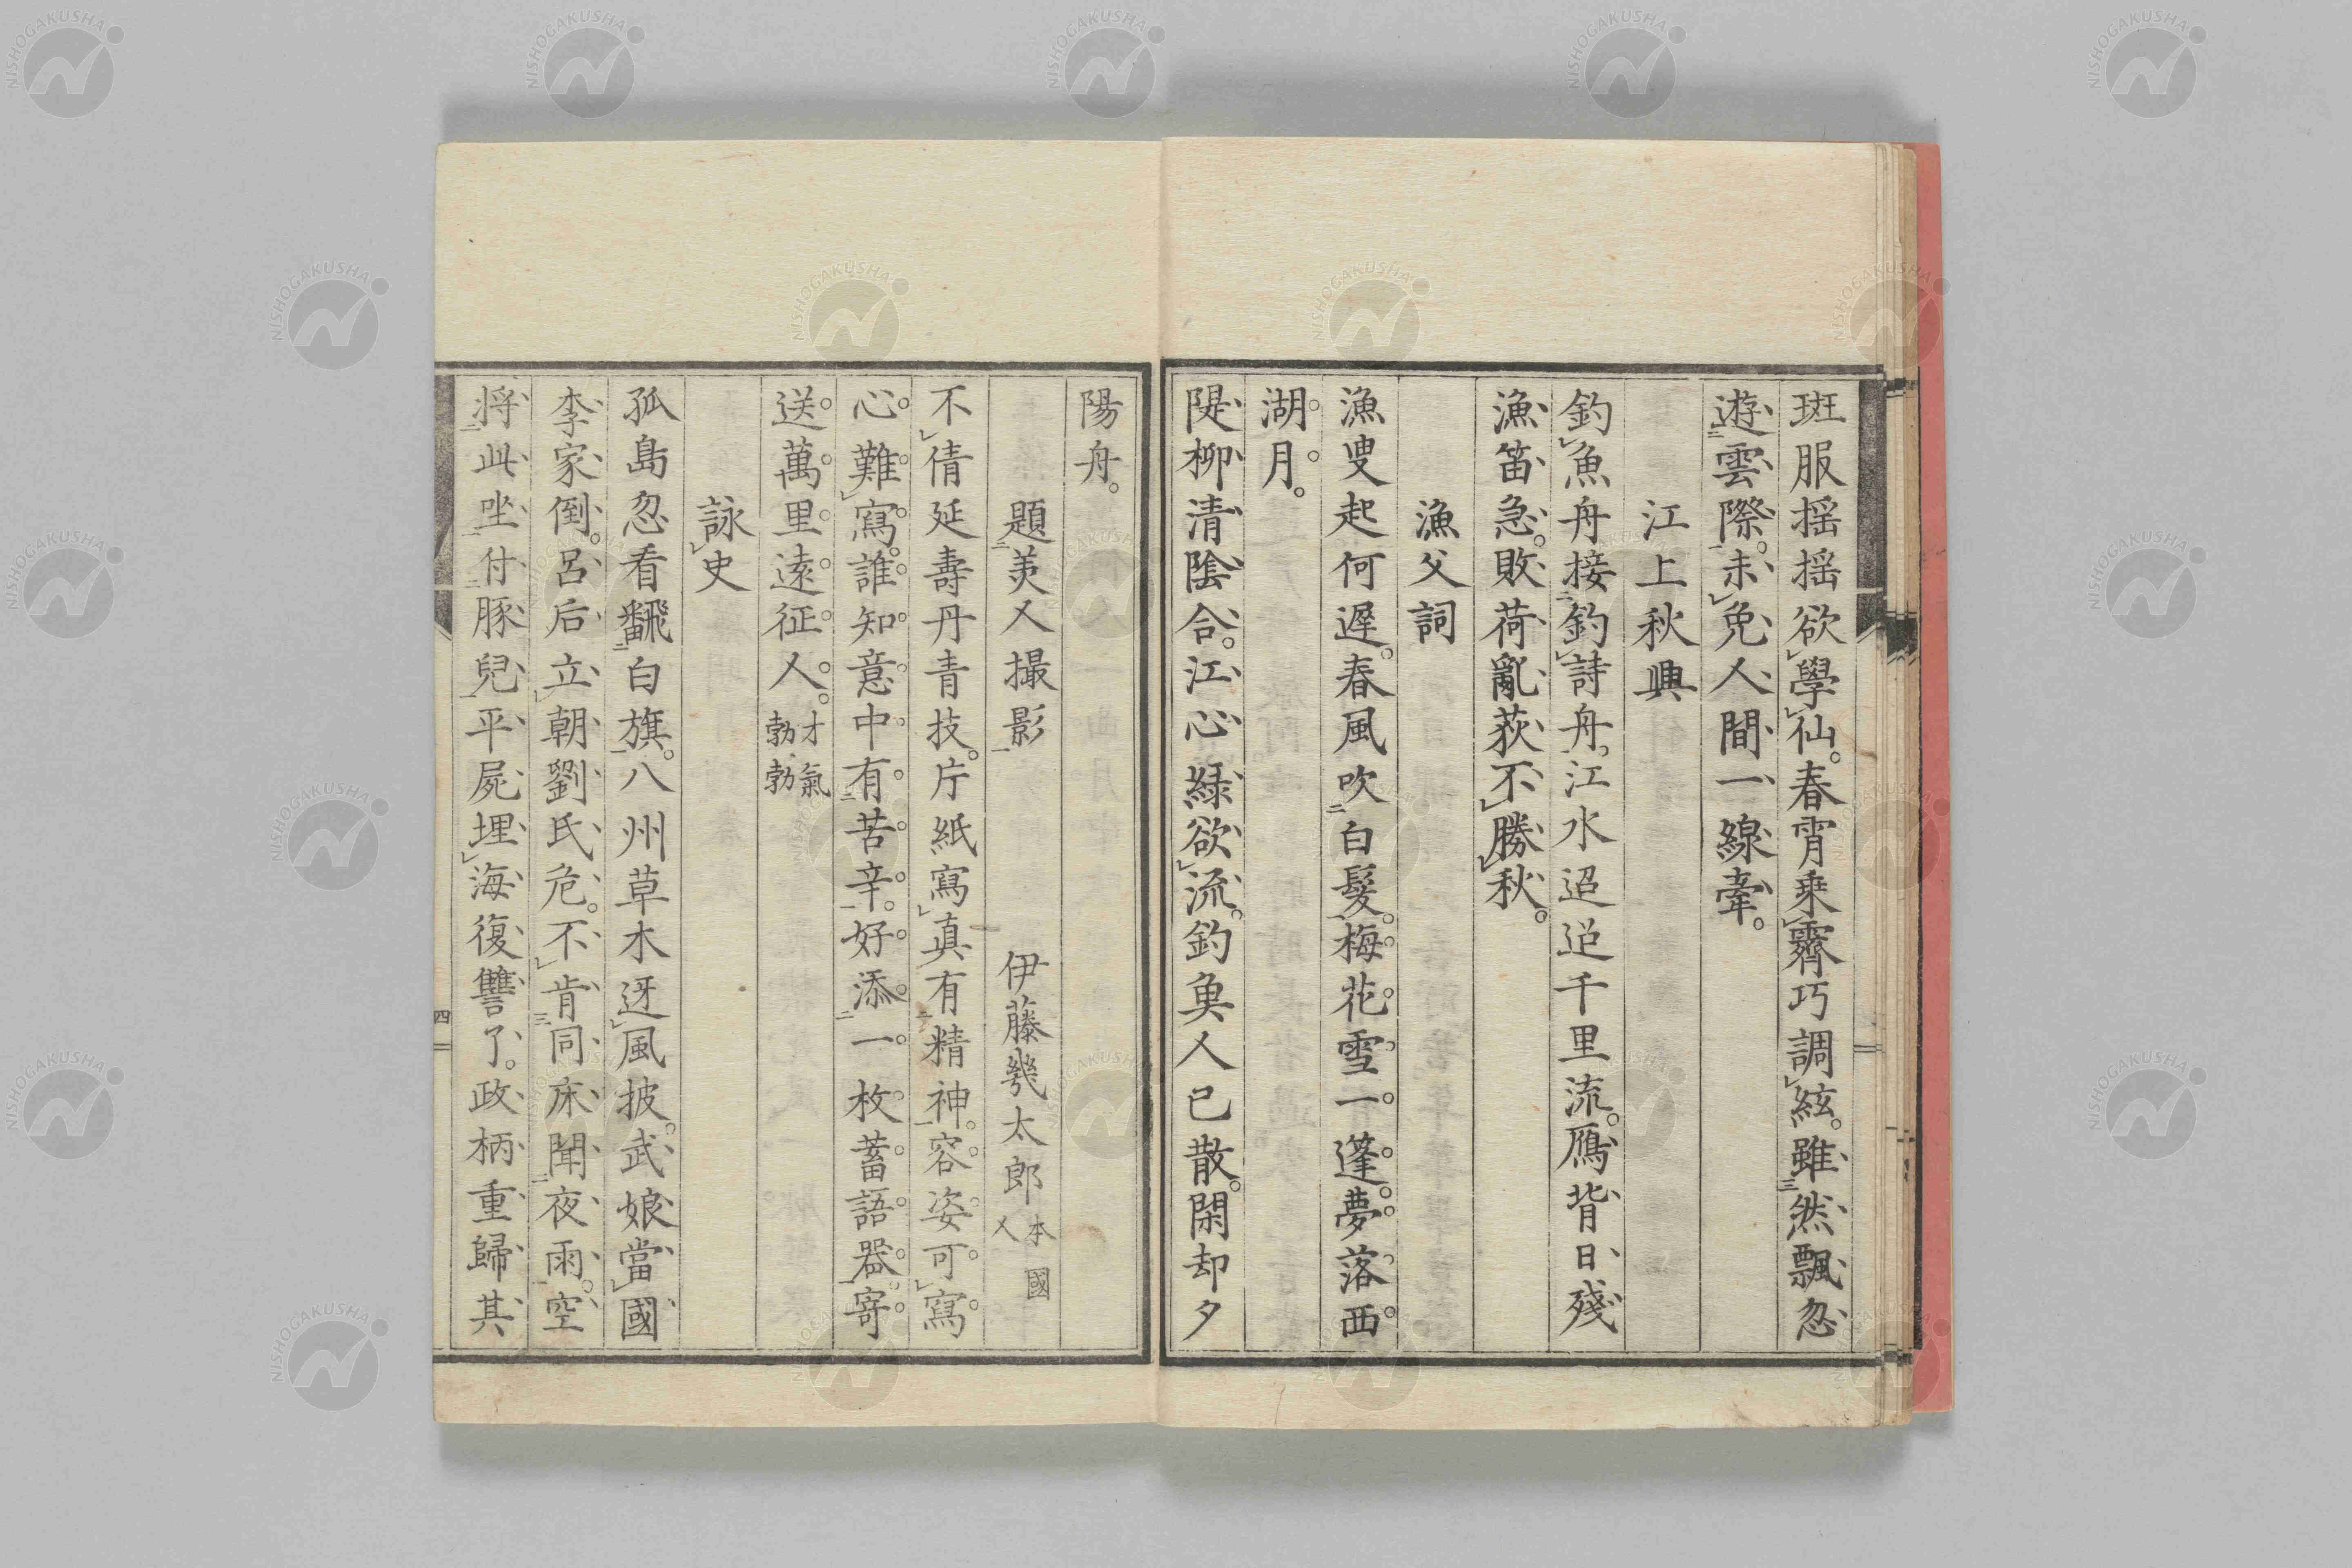 斑服揺揺欲學仙。春宵乗霽巧調絃。雖然飄忽
遊雲際。未免人間一線牽。
江上秋興
釣魚舟接釣詩舟。江水迢迢千里流。鴈背日殘
漁笛急。敗荷亂荻不勝秋。
漁父詞
漁叟起何遲。春風吹白髮。梅花雪一篷。夢落西
湖月。
隄柳清陰合。江心緑欲流。釣魚人已散。閑却夕
陽舟。
題美人撮影 伊藤幾太郎 本國人
不倩延壽丹青技。片紙寫真有精神。容姿可寫
心難寫。誰知意中有苦辛。好添一枚蓄語器。寄
送萬里遠征人。才氣勃勃
詠史
孤島忽看飜白旗。八州草木迓風披。武娘當國
李家倒。呂后立朝劉氏危。不肯同床聞夜雨。空
將此坐付豚兒。平屍埋海復讐了。政柄重歸其
四
NISHOGAKUSHA